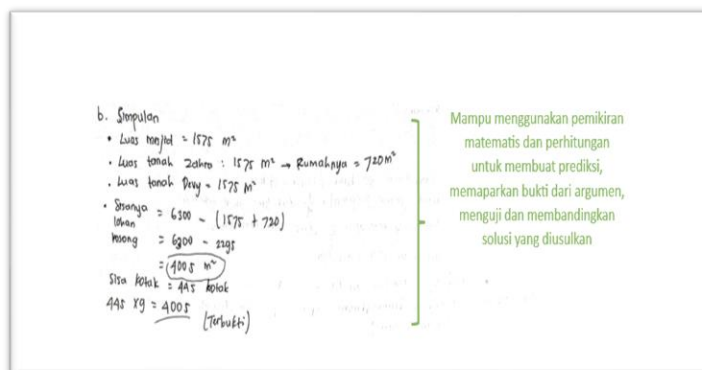 b. Simpulan
• Luas masjid = 1575 m²
• Luas tanah Zahra : 1575 m² → Rumahnya = 720 m²
• Luas tanah Devy = 1575 m²
• Sisanya = 6300 - (1575 + 720)
lahan
kosong = 6300 - 2295
= 4005 m²
Sisa kotak = 445 kotak
445 x 9 = 4005 (Terbukti)
Mampu menggunakan pemikiran
matematis dan perhitungan
untuk membuat prediksi,
memaparkan bukti dari argumen,
menguji dan membandingkan
solusi yang diusulkan